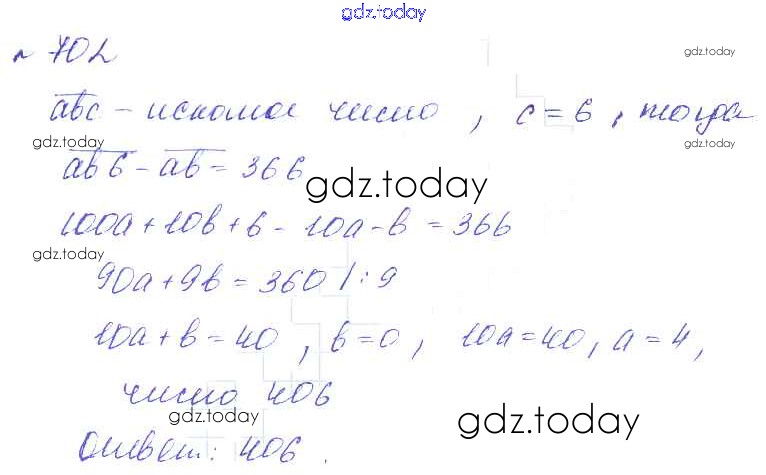 gdz.today
№ 702
gdz.today
abc - искомое число, c = 6, тогда
gdz.today
ab6 - ab = 366
gdz.today
100a + 10b + 6 - 10a - b = 366
gdz.today
90a + 9b = 360 / : 9
10a + b = 40, b = 0, 10a = 40, a = 4,
число 406
gdz.today
gdz.today
Ответ: 406.